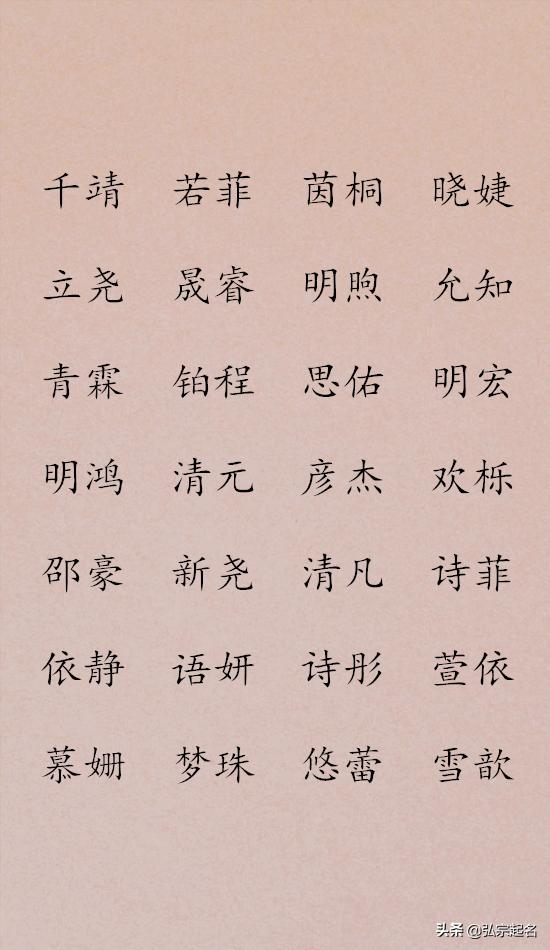 千靖 若菲 茵桐 晓婕
立尧 晟睿 明煦 允知
青霖 铂程 思佑 明宏
明鸿 清元 彦杰 欢栎
邵豪 新尧 清凡 诗菲
依静 语妍 诗彤 萱依
慕姗 梦珠 悠蕾 雪歆
头条 @弘宗起名